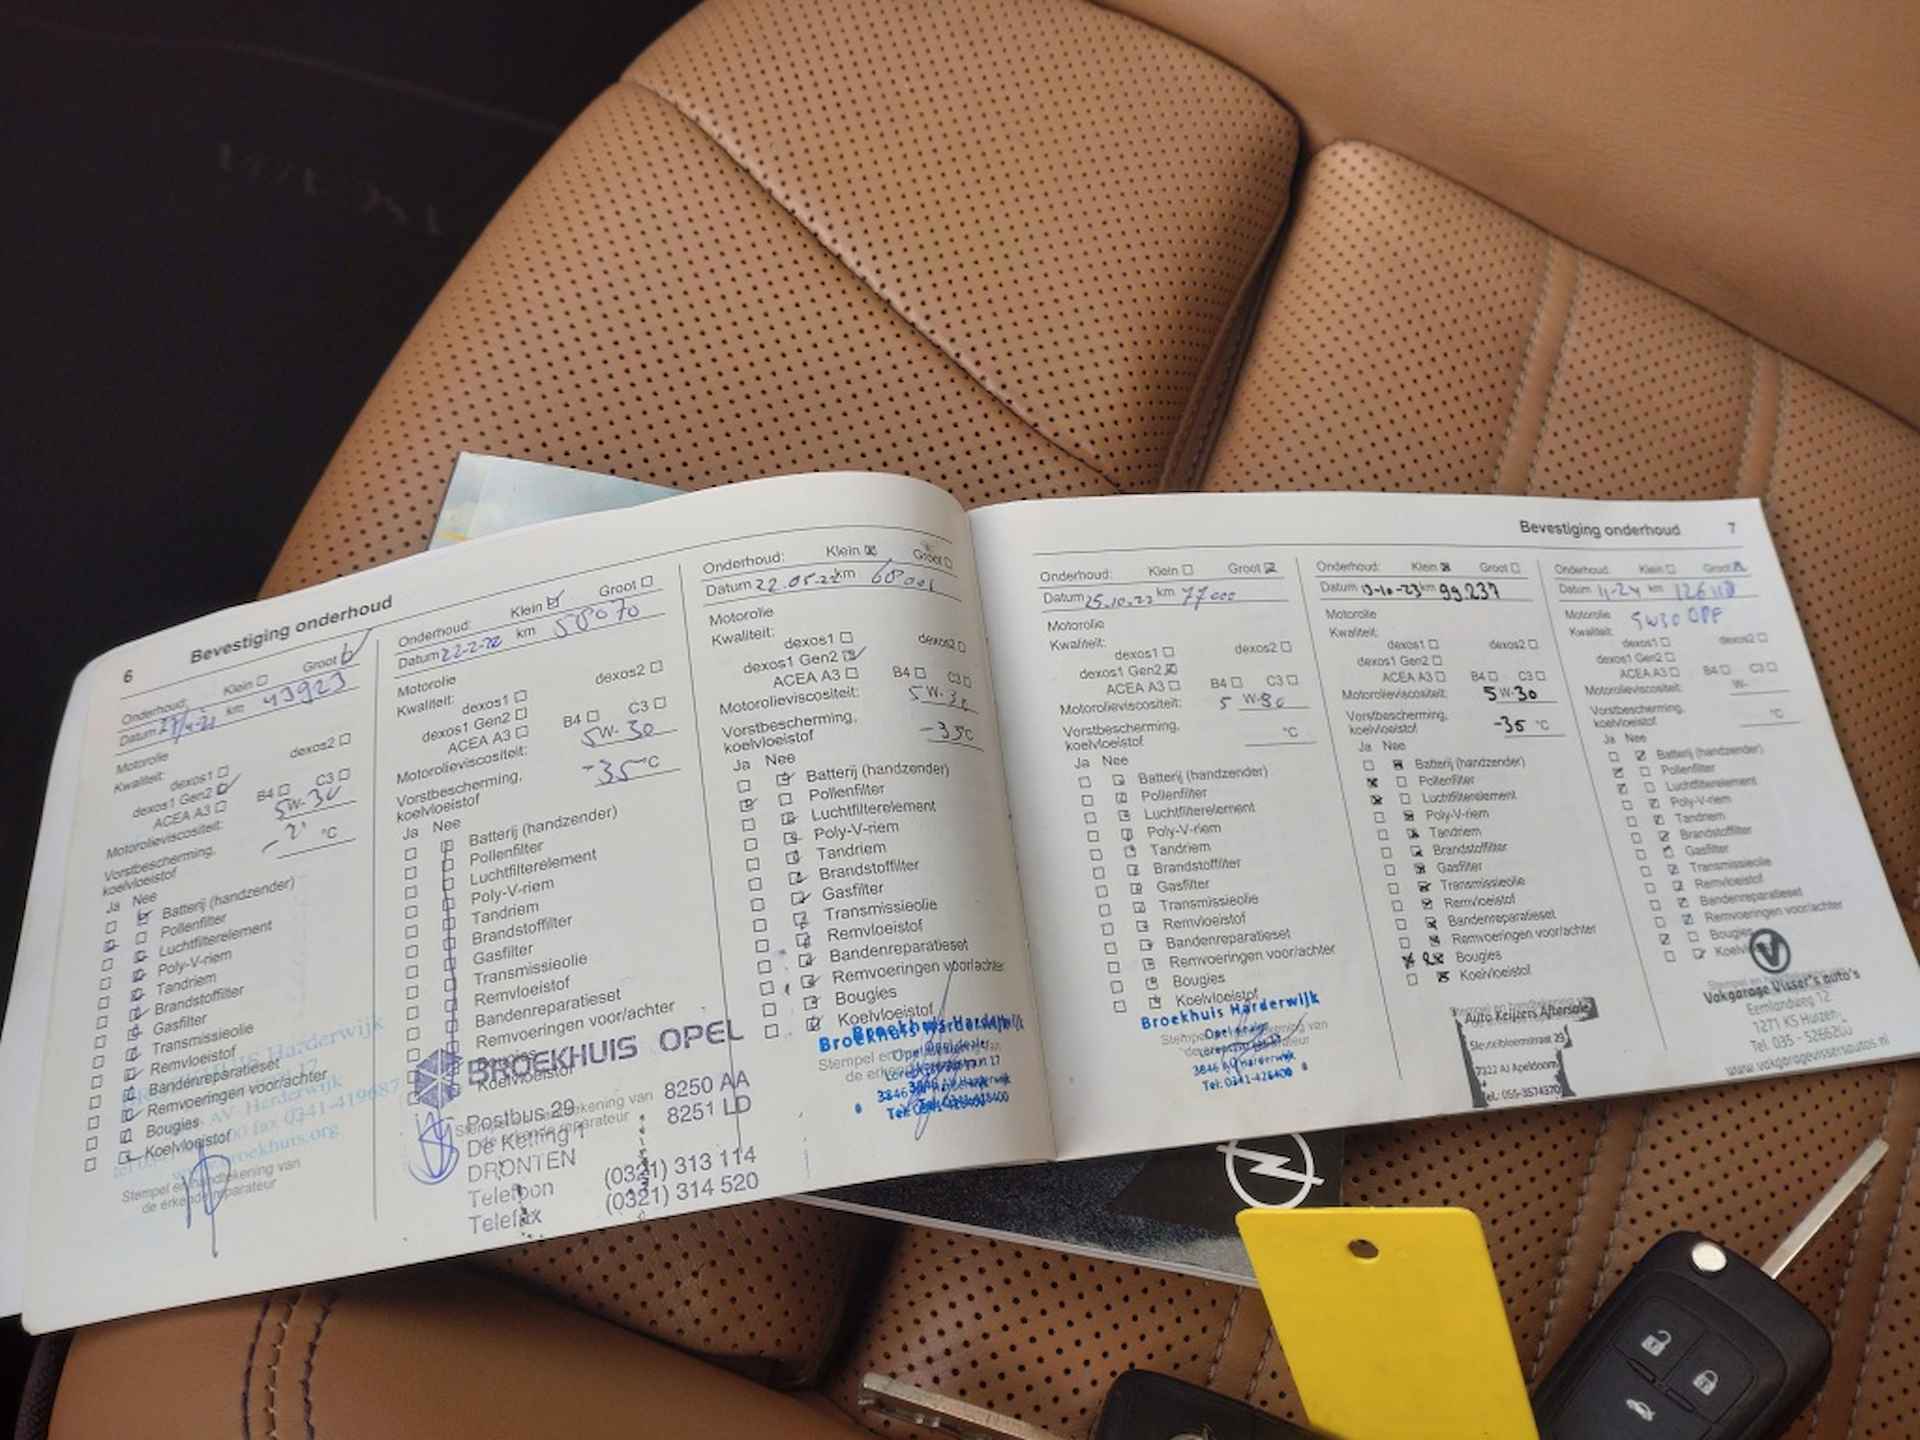 6 Bevestiging onderhoud
Onderhoud: Klein Groot
Datum km 43923
Motorolie
Kwaliteit: dexos1 dexos2
dexos1 Gen2
ACEA A3 B4 C3
Motorolieviscositeit: 5W-30
Vorstbescherming, °C
koelvloeistof
Ja Nee
Batterij (handzender)
Pollenfilter
Luchtfilterelement
Poly-V-riem
Tandriem
Brandstoffilter
Gasfilter
Transmissieolie
Remvloeistof
Bandenreparatieset
Remvoeringen voor/achter
Bougies
Koelvloeistof
Stempel en handtekening van
de erkende reparateur
Onderhoud: Klein Groot
Datum 22-2-22 km 58070
Motorolie
Kwaliteit: dexos1 dexos2
dexos1 Gen2
ACEA A3 B4 C3
Motorolieviscositeit: 5W-30
Vorstbescherming, -35°C
koelvloeistof
Ja Nee
Batterij (handzender)
Pollenfilter
Luchtfilterelement
Poly-V-riem
Tandriem
Brandstoffilter
Gasfilter
Transmissieolie
Remvloeistof
Bandenreparatieset
Remvoeringen voor/achter
Bougies
Koelvloeistof
BROEKHUIS OPEL
Postbus 29 8250 AA
De Ketting 1 8251 LD
DRONTEN
Telefoon (0321) 313 114
Telefax (0321) 314 520
Onderhoud: Klein Groot
Datum 22.05.22 km 68001
Motorolie
Kwaliteit: dexos1 dexos2
dexos1 Gen2
ACEA A3 B4 C3
Motorolieviscositeit: 5W-30
Vorstbescherming, -35°C
koelvloeistof
Ja Nee
Batterij (handzender)
Pollenfilter
Luchtfilterelement
Poly-V-riem
Tandriem
Brandstoffilter
Gasfilter
Transmissieolie
Remvloeistof
Bandenreparatieset
Remvoeringen voor/achter
Bougies
Koelvloeistof
Broekhuis Harderwijk
Bevestiging onderhoud 7
Onderhoud: Klein Groot
Datum 25.10.22 km 77000
Motorolie
Kwaliteit: dexos1 dexos2
dexos1 Gen2
ACEA A3 B4 C3
Motorolieviscositeit: 5W-30
Vorstbescherming, °C
koelvloeistof
Ja Nee
Batterij (handzender)
Pollenfilter
Luchtfilterelement
Poly-V-riem
Tandriem
Brandstoffilter
Gasfilter
Transmissieolie
Remvloeistof
Bandenreparatieset
Remvoeringen voor/achter
Bougies
Koelvloeistof
Broekhuis Harderwijk
Opel dealer
3846 AV Harderwijk
Tel: 0341-428400
Onderhoud: Klein Groot
Datum 13-10-23 km 99.237
Motorolie
Kwaliteit: dexos1 dexos2
dexos1 Gen2
ACEA A3 B4 C3
Motorolieviscositeit: 5W-30
Vorstbescherming, -35 °C
koelvloeistof
Ja Nee
Batterij (handzender)
Pollenfilter
Luchtfilterelement
Poly-V-riem
Tandriem
Brandstoffilter
Gasfilter
Transmissieolie
Remvloeistof
Bandenreparatieset
Remvoeringen voor/achter
Bougies
Koelvloeistof
Auto Keijzers Aftersale
Sleutelbloemstraat 29
7322 AJ Apeldoorn
Tel.: 055-3574370
Onderhoud: Klein Groot
Datum 11-24 km
Motorolie 5W30
Kwaliteit: dexos1 dexos2
dexos1 Gen2
ACEA A3 B4 C3
Motorolieviscositeit: W-
Vorstbescherming, °C
koelvloeistof
Ja Nee
Batterij (handzender)
Pollenfilter
Luchtfilterelement
Poly-V-riem
Tandriem
Brandstoffilter
Gasfilter
Transmissieolie
Remvloeistof
Bandenreparatieset
Remvoeringen voor/achter
Bougies
Vakgarage Visser's auto's
Eemlandweg 12
1271 KS Huizen
Tel. 035 - 5266200
www.vakgaragevissersautos.nl